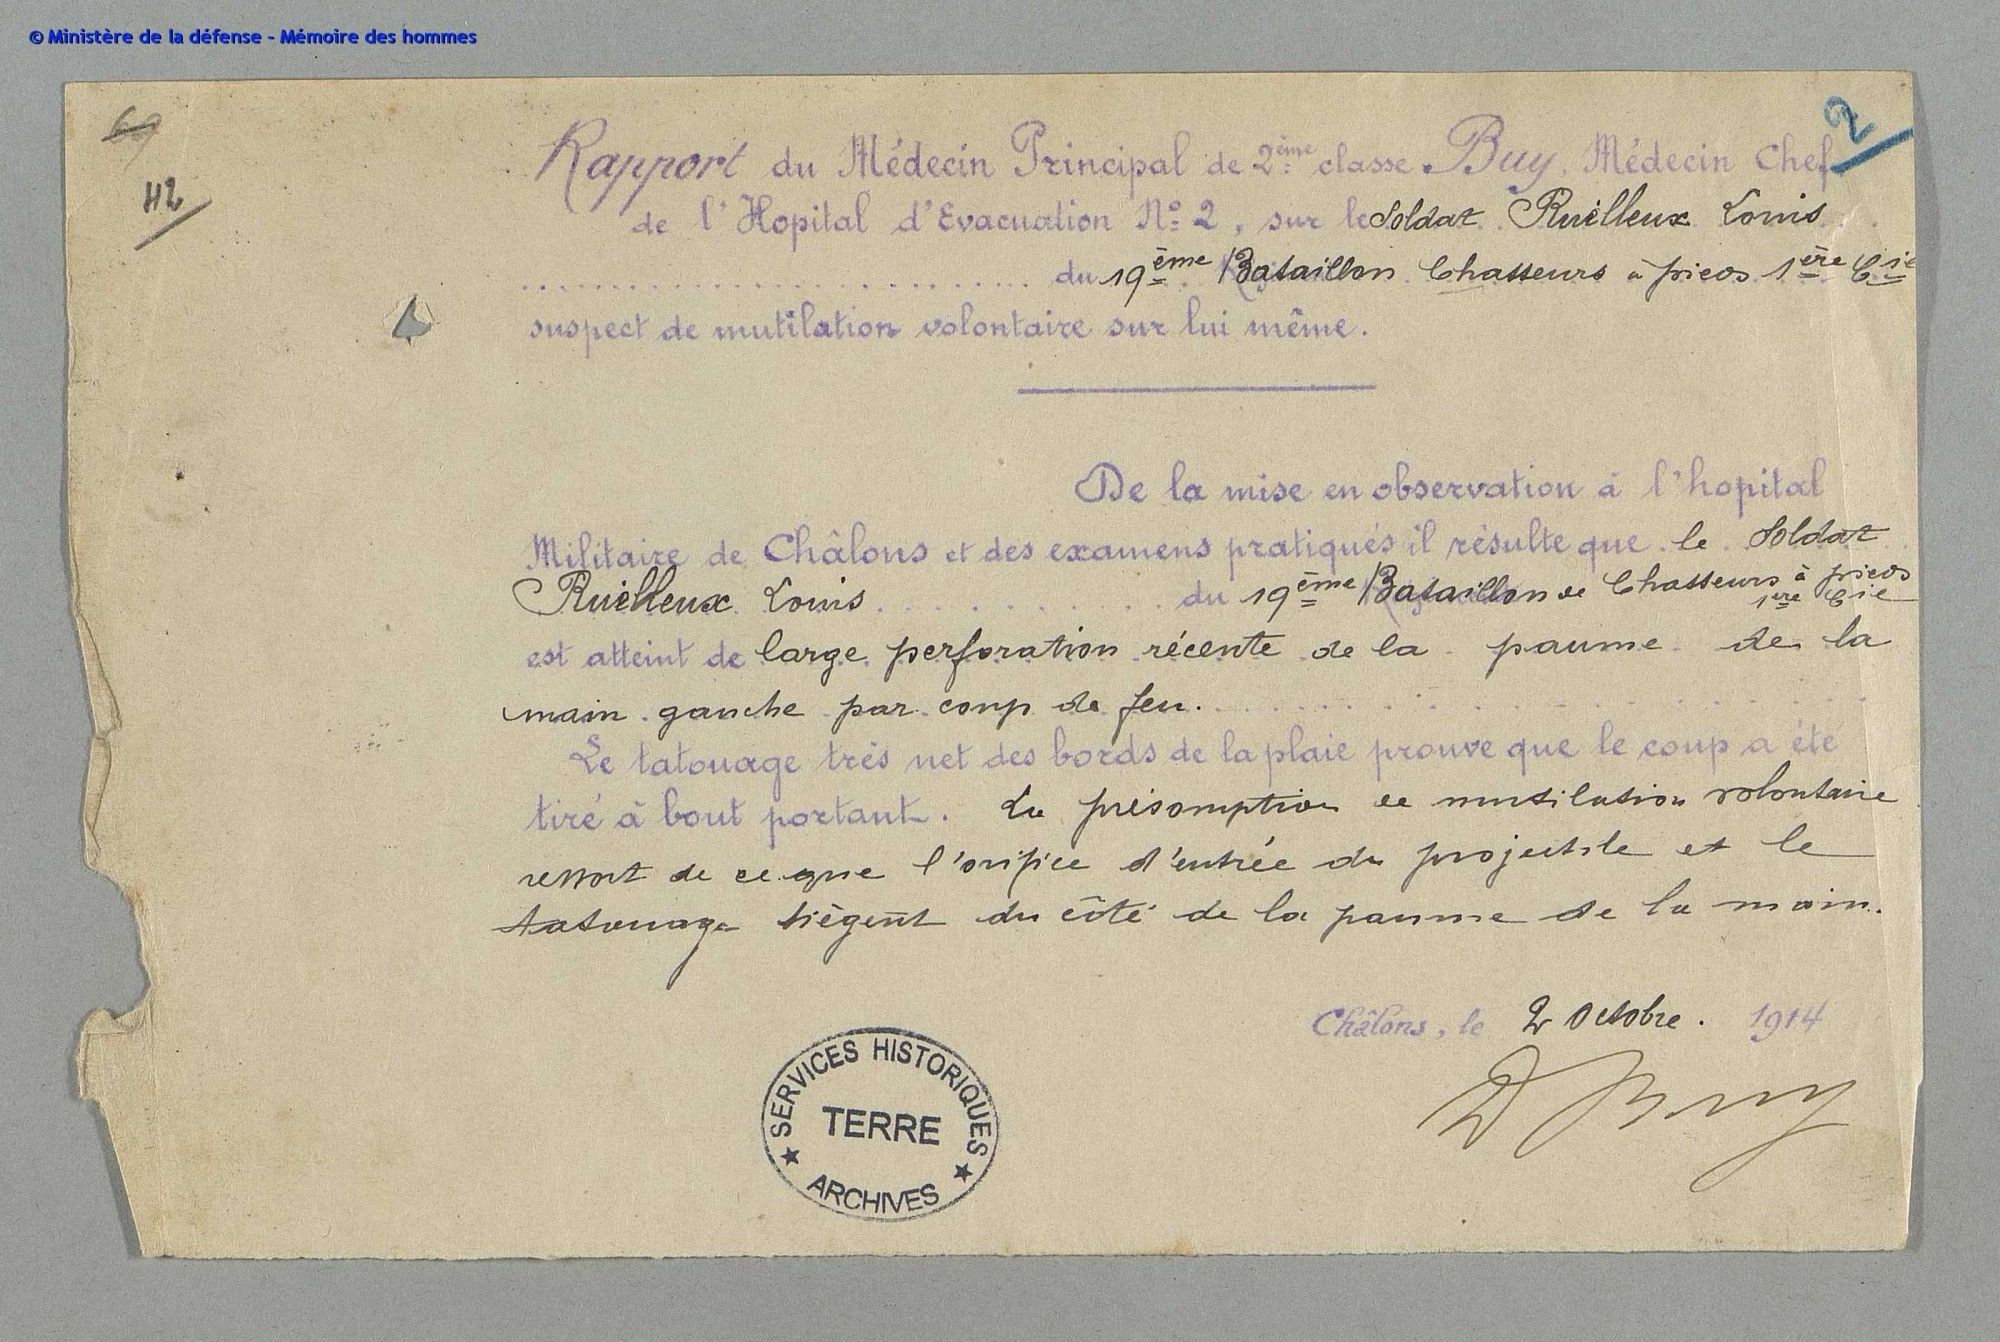 © Ministère de la défense - Mémoire des hommes
69
42
2
Rapport du Médecin Principal de 2ème classe Buy, Médecin Chef
de l'Hopital d'Evacuation No 2, sur le Soldat Ruilleux Louis
du 19ème Bataillon Chasseurs à pieds 1ère Cie
suspect de mutilation volontaire sur lui même.
De la mise en observation à l'hopital
Militaire de Châlons et des examens pratiqués il résulte que le Soldat
Ruilleux Louis du 19ème Bataillon de Chasseurs à pieds
1ère Cie
est atteint de large perforation récente de la paume de la
main gauche par coup de feu.
Le tatouage très net des bords de la plaie prouve que le coup a été
tiré à bout portant. La présomption de mutilation volontaire
ressort de ce que l'orifice d'entrée du projectile et le
tatouage siègent du côté de la paume de la main.
Châlons, le 2 Octobre. 1914
D Buy
SERVICES HISTORIQUES
TERRE
ARCHIVES